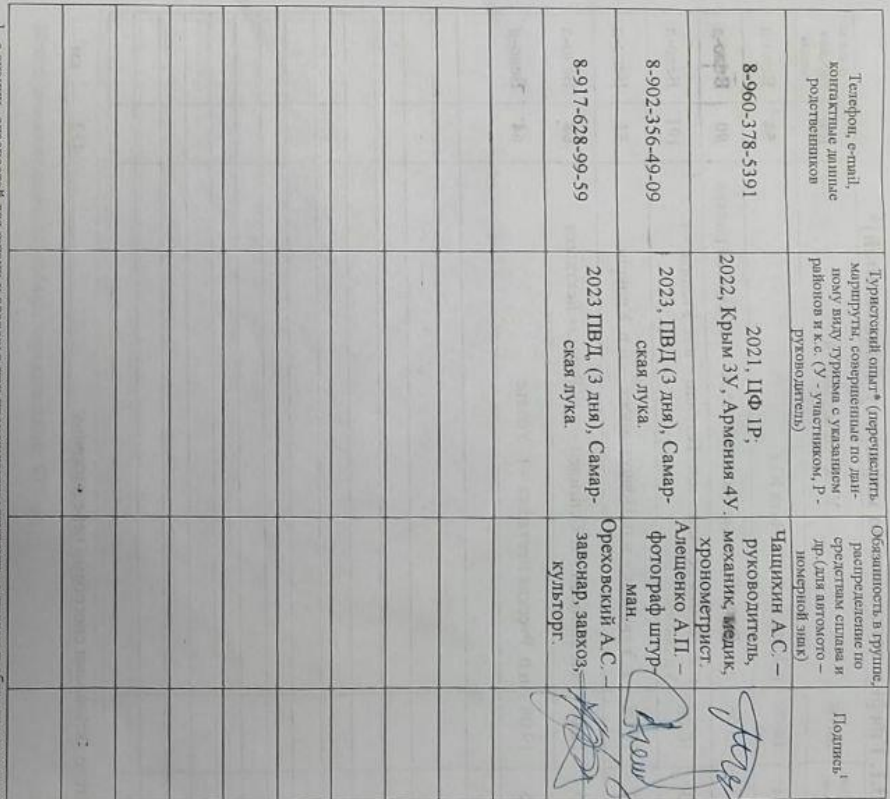 Телефон, e-mail,
контактные данные
родственников
Туристский опыт* (перечислить
маршруты, совершенные по дан-
ному виду туризма с указанием
районов и к.с. (У - участником, Р -
руководитель)
Обязанность в группе,
распределение по
средствам сплава и
др.(для автомото –
номерной знак)
Подпись¹
8-960-378-5391
2021, ЦФ 1Р;
2022, Крым 3У, Армения 4У.
Чащихин А.С. –
руководитель,
механик, медик,
хронометрист.
8-902-356-49-09
2023, ПВД (3 дня), Самар-
ская лука.
Алещенко А.П. –
фотограф штур-
ман.
8-917-628-99-59
2023 ПВД, (3 дня), Самар-
ская лука.
Ореховский А.С. –
завснар, завхоз,
культорг.